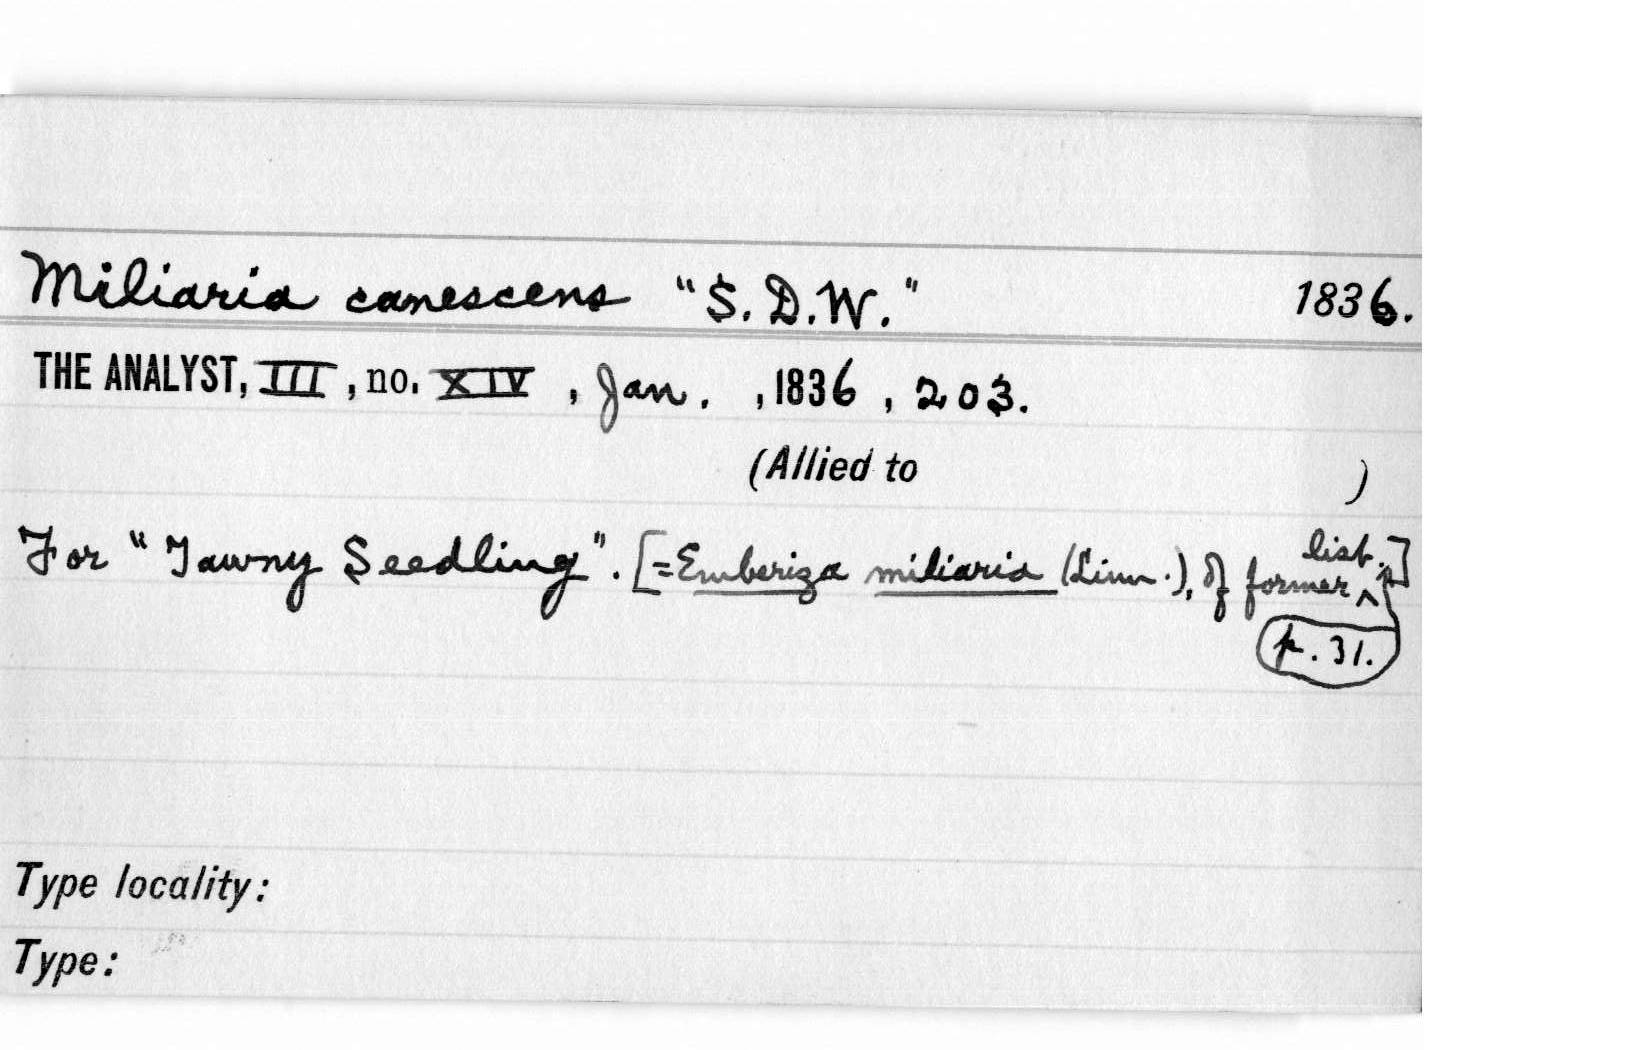 Miliaria canescens "S. D. W." 1836.
THE ANALYST, III, no. XIV, Jan. , 1836, 203.
(Allied to )
For "Tawny Seedling". [=Emberiza miliaria (Linn.), of former ^ list.]
p. 31.
Type locality:
Type: